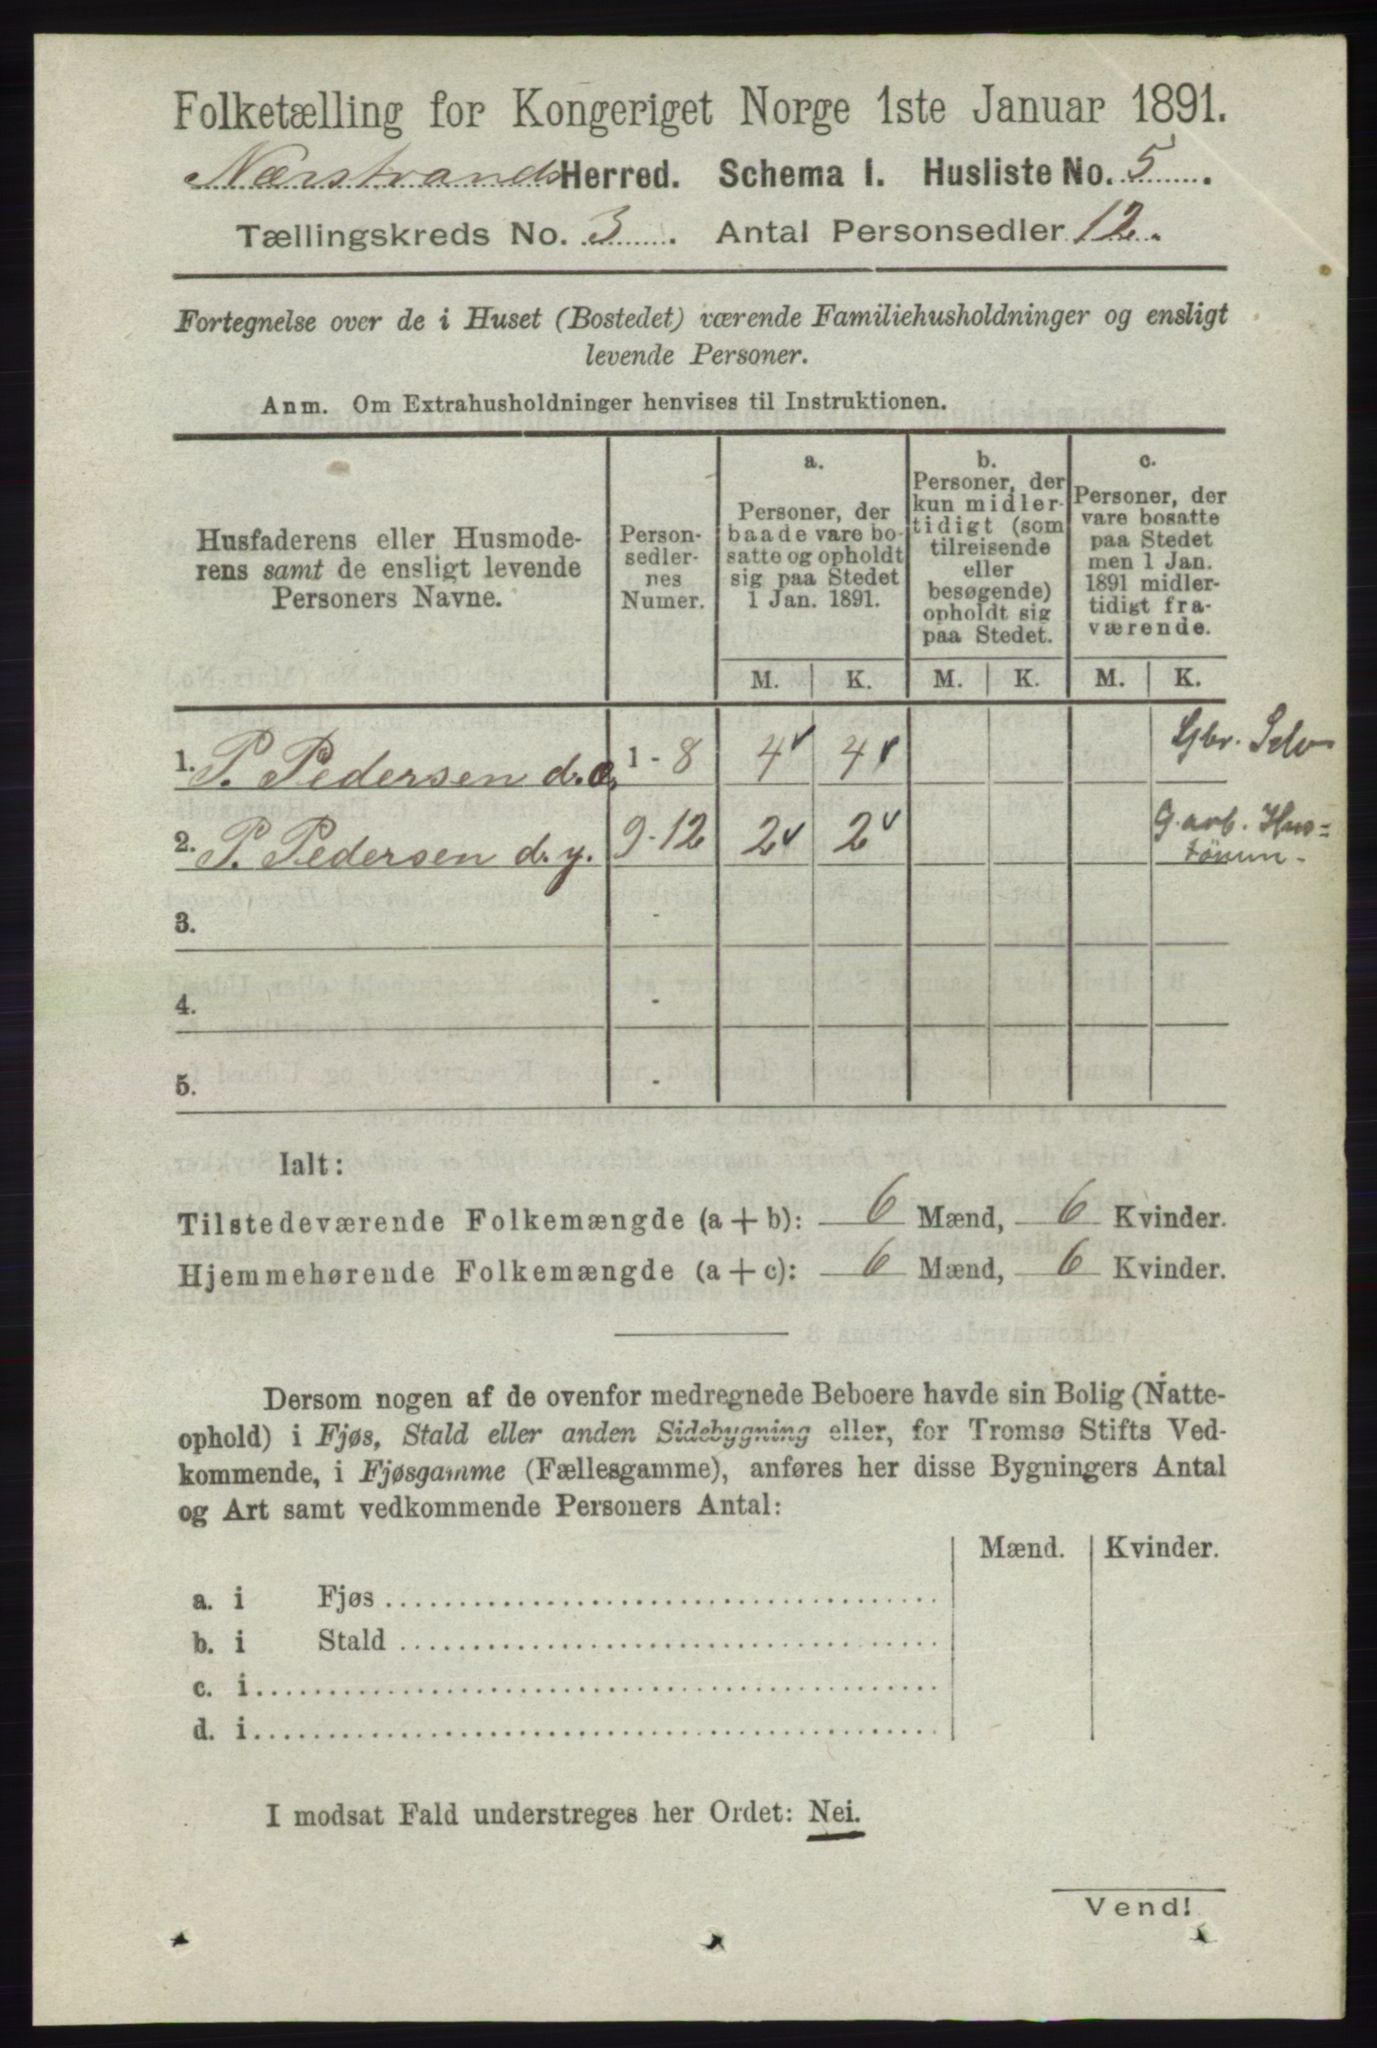 Folketælling for Kongeriget Norge 1ste Januar 1891.
Nærstrands Herred. Schema I. Husliste No. 5.
Tællingskreds No. 3. Antal Personsedler 12.
Fortegnelse over de i Huset (Bostedet) værende Familiehusholdninger og ensligt
levende Personer.
Anm. Om Extrahusholdninger henvises til Instruktionen.
Husfaderens eller Husmode-
rens samt de ensligt levende
Personers Navne.
Person-
sedler-
nes
Numer.
a.
Personer, der
baade vare bo-
satte og opholdt
sig paa Stedet
1 Jan. 1891.
b.
Personer, der
kun midler-
tidigt (som
tilreisende
eller
besøgende)
opholdt sig
paa Stedet.
c.
Personer, der
vare bosatte
paa Stedet
men 1 Jan.
1891 midler-
tidigt fra-
værende.
M. K. M. K. M. K.
1. P. Pedersen d.æ. 1 - 8 4 4 Gbr. Selv
2. P. Pedersen d. y. 9-12 2 2 G.arb. Hus=
3. -
4. -
5. -
Ialt:
Tilstedeværende Folkemængde (a + b): 6 Mænd, 6 Kvinder.
Hjemmehørende Folkemængde (a + c): 6 Mænd, 6 Kvinder.
Dersom nogen af de ovenfor medregnede Beboere havde sin Bolig (Natte-
ophold) i Fjøs, Stald eller anden Sidebygning eller, for Tromsø Stifts Ved-
kommende, i Fjøsgamme (Fællesgamme), anføres her disse Bygningers Antal
og Art samt vedkommende Personers Antal:
Mænd. Kvinder.
a. i Fjøs
b. i Stald
c. i
d. i
I modsat Fald understreges her Ordet: Nei.
Vend!